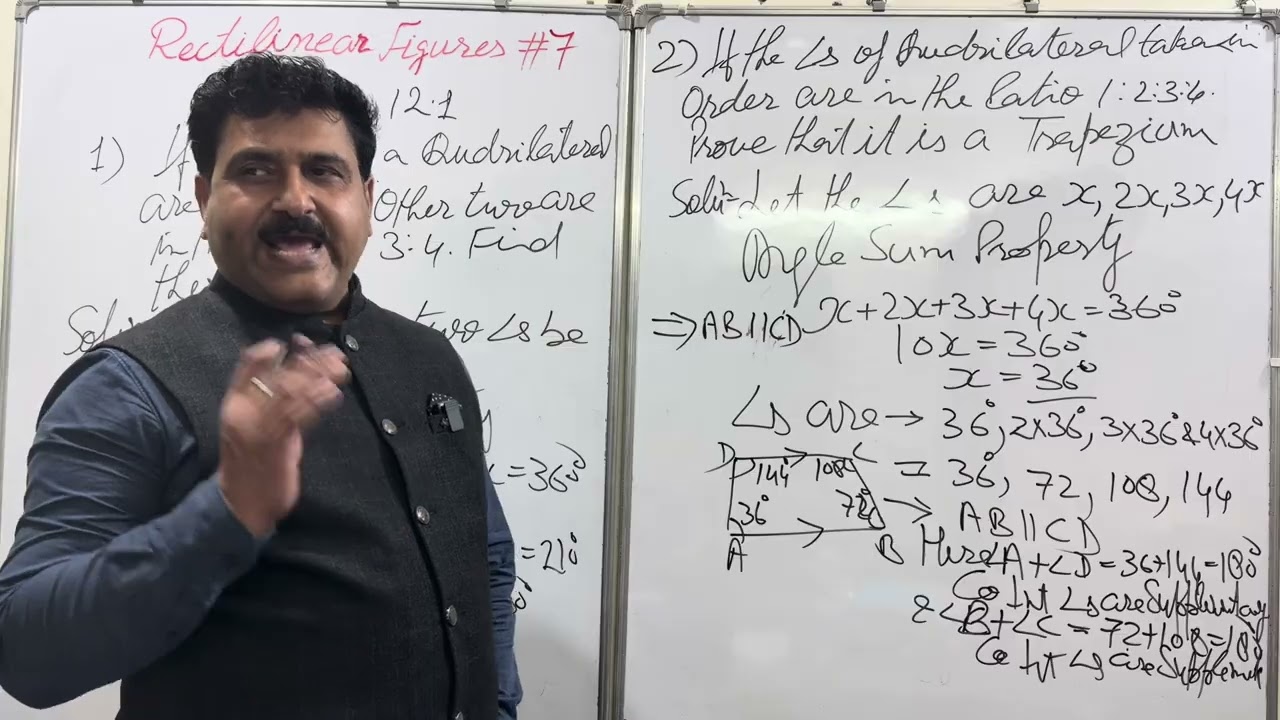 Rectilinear Figures #7
12.1
1) If a Qudrilateral
are Other two are
in 3:4. Find
the
Soln two ∠s be
= 360°
= 210°
2) If the ∠s of Qudrilateral taken in
Order are in the Ratio 1:2:3:4.
Prove that it is a Trapezium
Soln- Let the ∠s are x, 2x, 3x, 4x
Angle Sum Property
⇒ AB || CD x + 2x + 3x + 4x = 360°
10x = 360°
x = 36°
∠s are → 36°, 2×36°, 3×36° & 4×36°
= 36°, 72, 108, 144
D 144° 108° C
36° 72°
A B
→ AB || CD
Here ∠A + ∠D = 36 + 144 = 180°
Co Int ∠s are Supplementary
& ∠B + ∠C = 72 + 108 = 180°
Co Int ∠s are